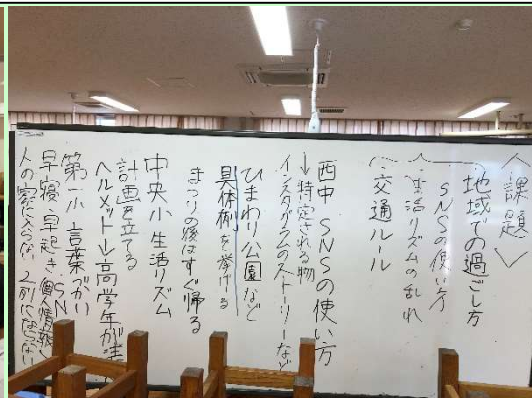 〈課題〉
地域での過ごし方
SNSの使い方
生活リズムの乱れ
交通ルール
西中 SNSの使い方
↓特定される物
インスタグラムのストーリーなど
ひまわり公園など
具体例を挙げる
まつりの後はすぐ帰る
中央小 生活リズム
計画を立てる
ヘルメット↓高学年が
第一小 言葉づかい
早寝、早起き 個人情報 SN
人の家に入らない 2列にならない